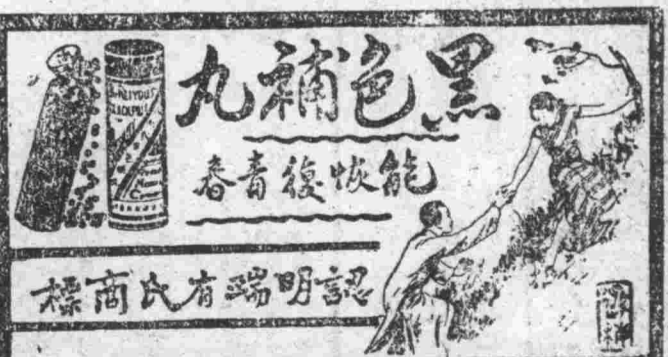 黑色補丸
能恢復青春
認明瑞有氏商標